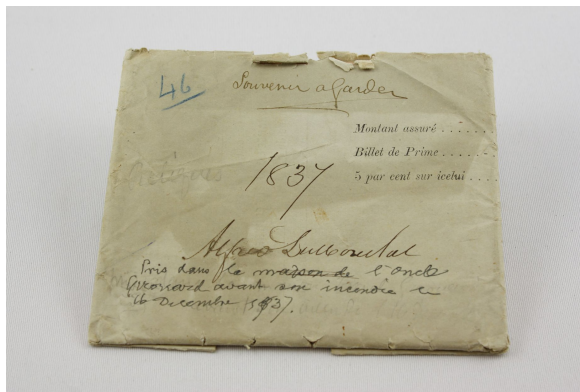 46
Souvenir a garder
Montant assuré . . . . . . .
Billet de Prime . . . . . .
5 par cent sur icelui . . . .
1837
Alfred Dumouchel
Pris dans la maison de l'oncle
avant son incendie le
16 Decembre 1837.